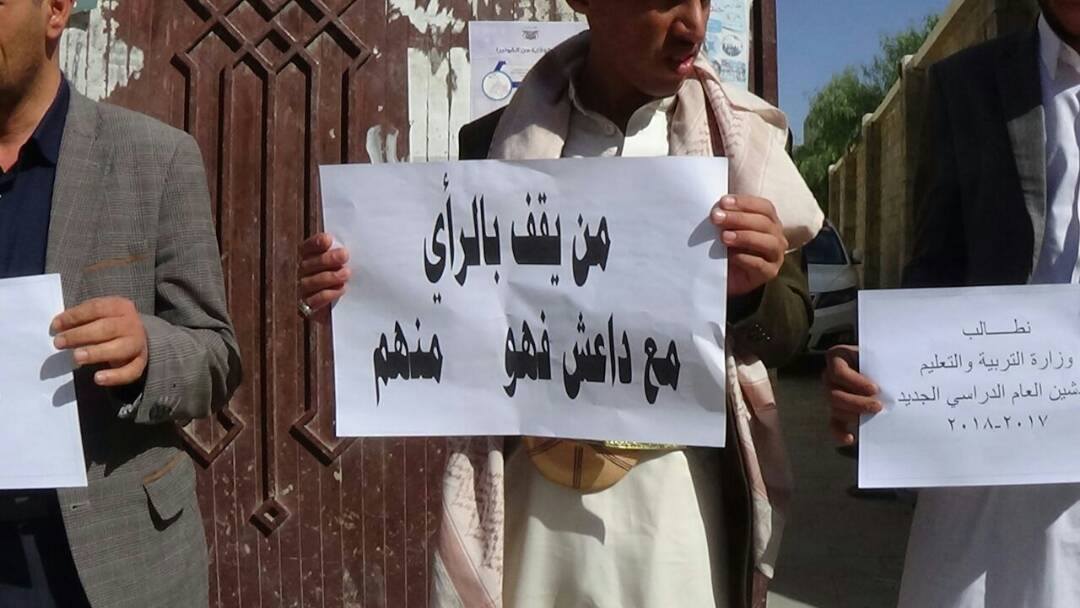 من يقف بالرأي
مع داعش فهو منهم
نطـــالب
وزارة التربية والتعليم
شين العام الدراسي الجديد
٢٠١٧-٢٠١٨